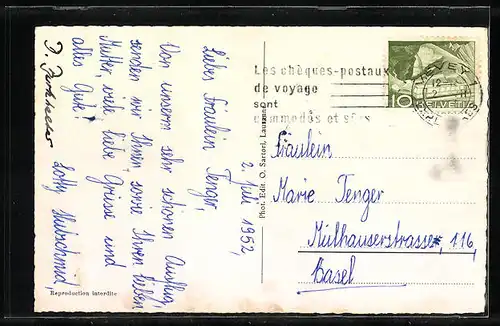 2. Juli 1952,
Liebes Fräulein Tenger,
Von unserm sehr schönen Ausflug,
senden wir Ihnen sowie Ihrer lieben
Mutter, viele, liebe Grüsse und
alles Gute!
Lotty Hubschmid,
Reproduction interdite
Phot. Edit. O. Sartori, Lausanne
Les chèques-postaux
de voyage
sont
commodes et sûrs
VEVEY
10
HELVETIA
Fräulein
Marie Tenger
Mülhauserstrasse, 116,
Basel